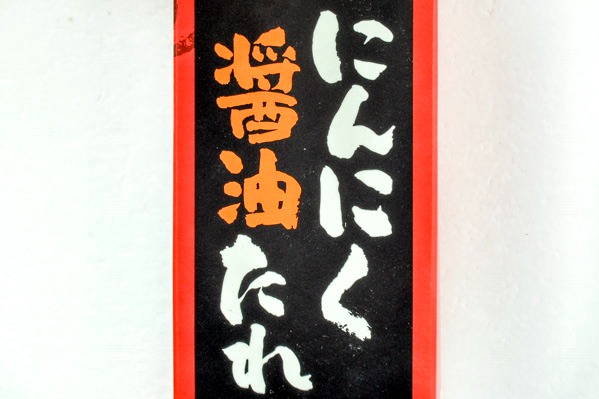 にんにく
醤油たれ